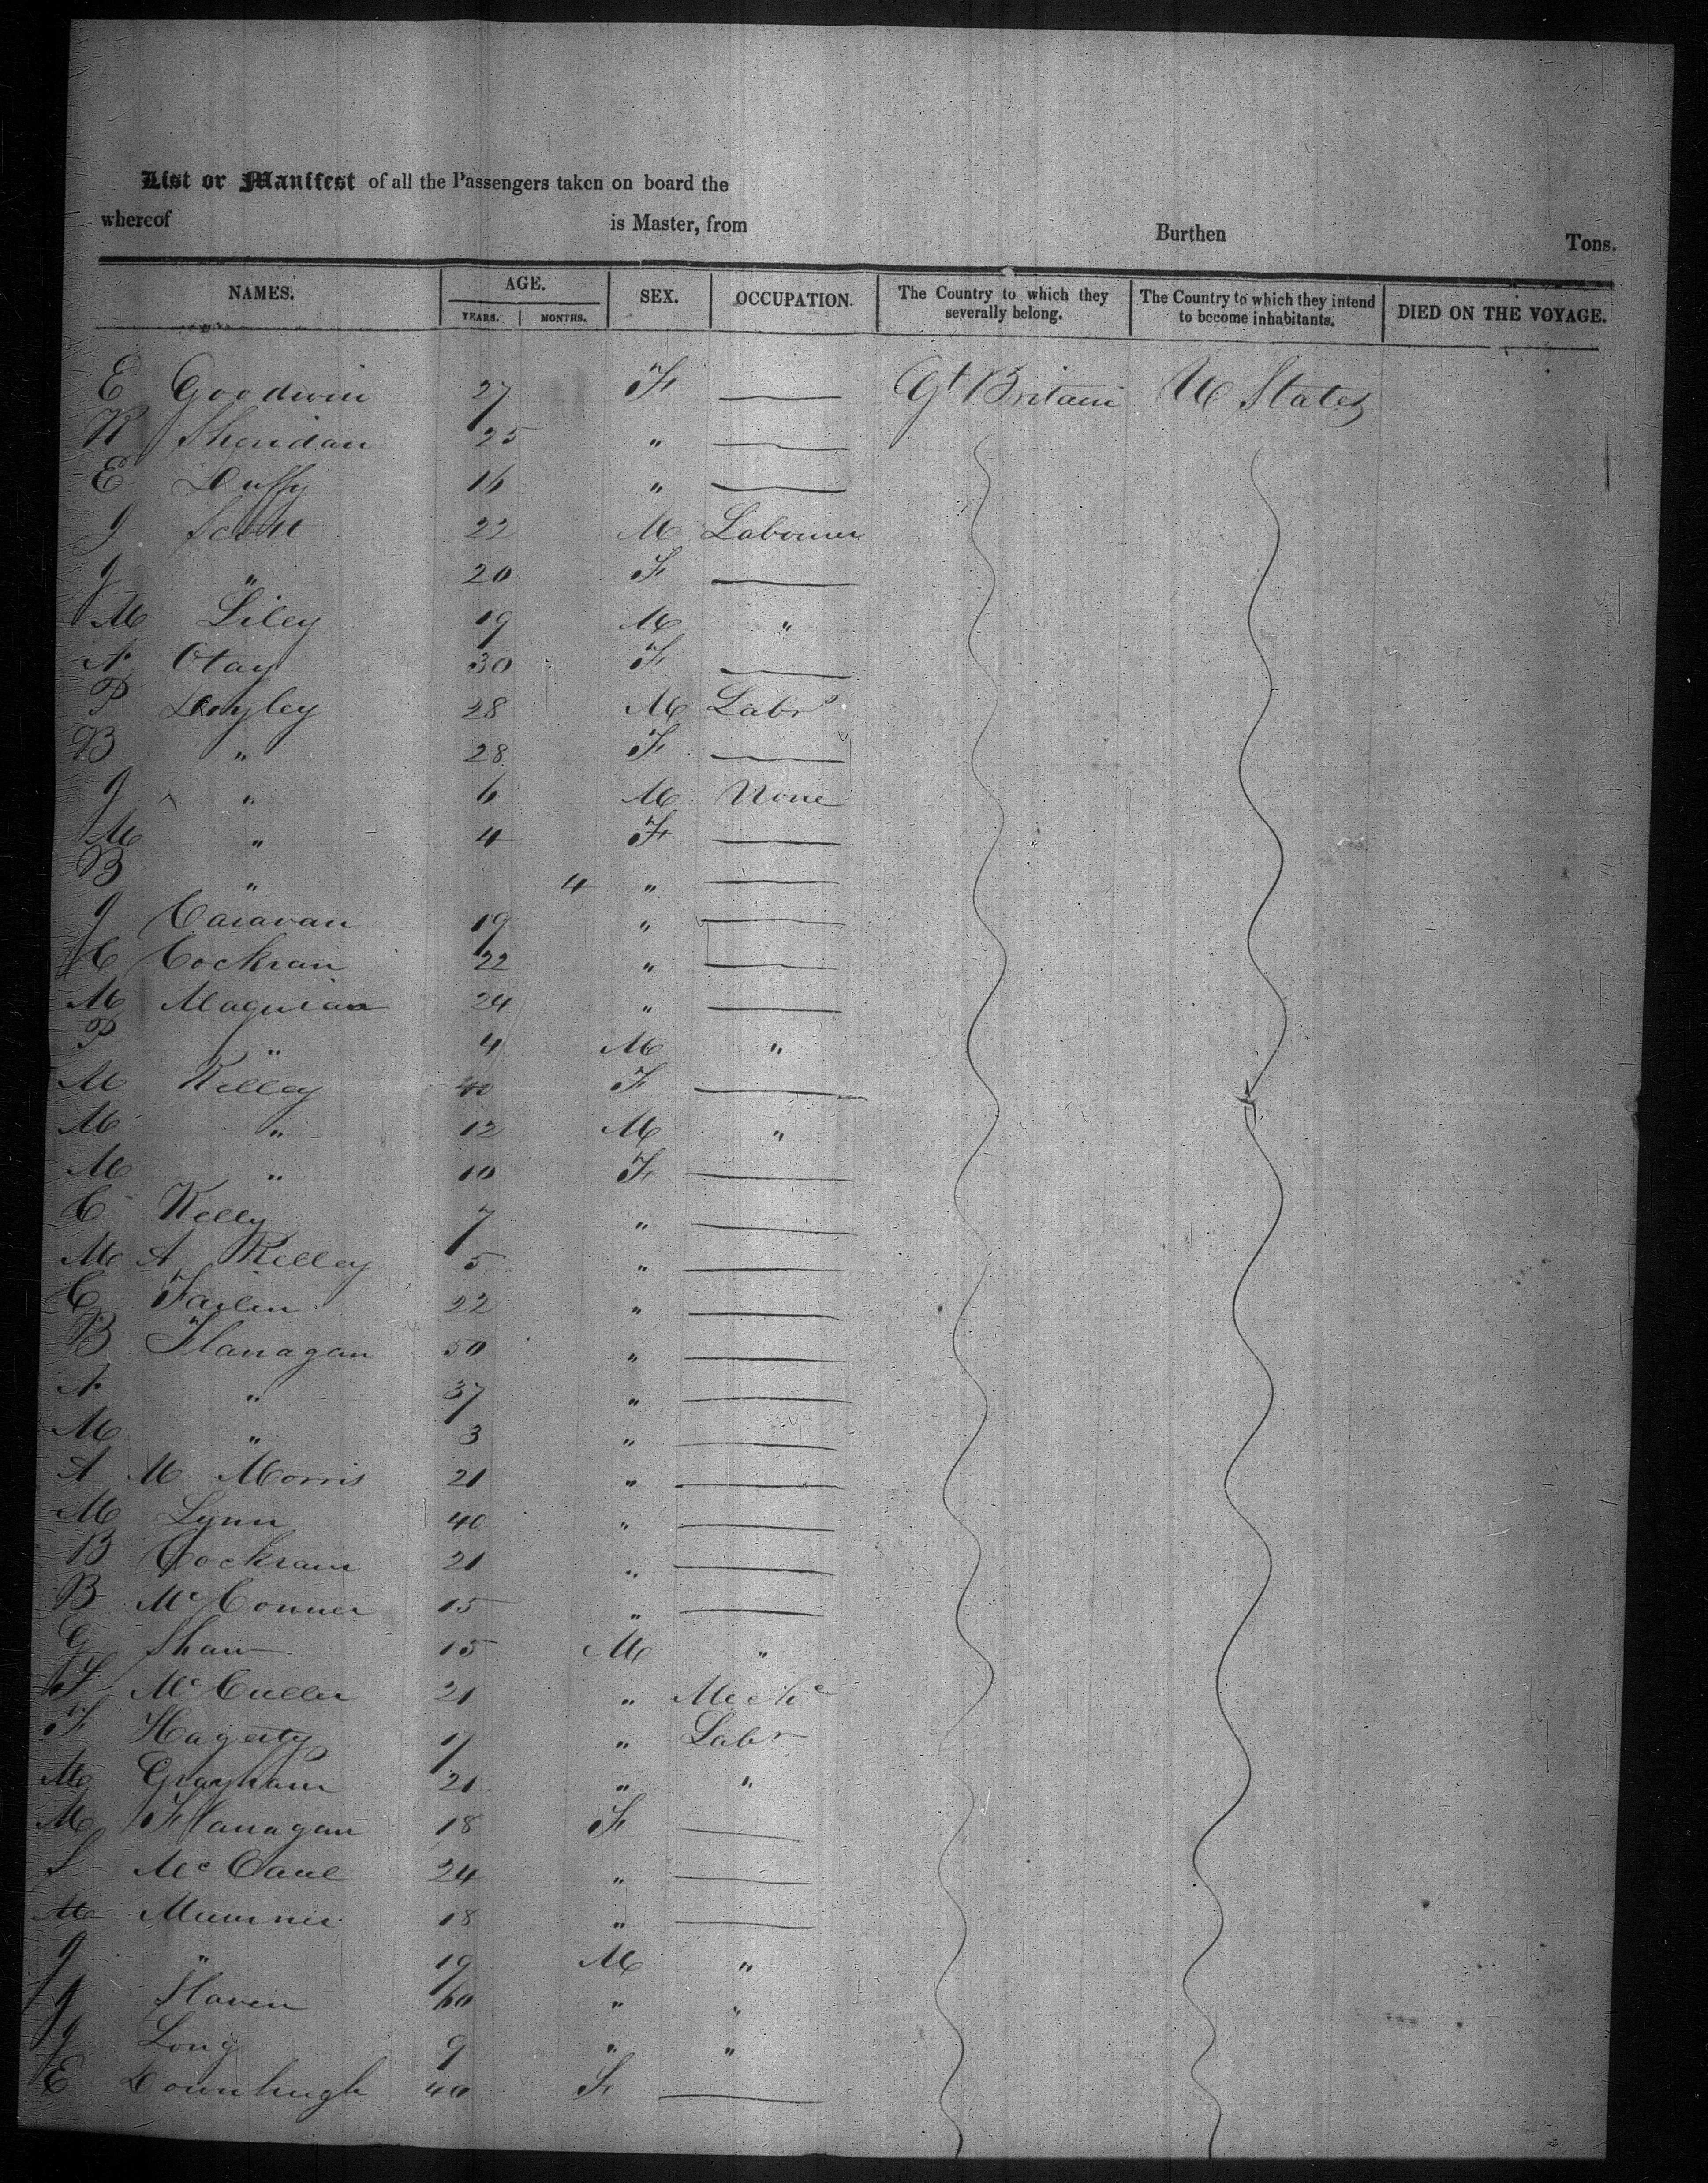 List or Manifest of all the Passengers taken on board the
whereof is Master, from Burthen Tons.
NAMES. AGE. SEX. OCCUPATION. The Country to which they severally belong. The Country to which they intend to become inhabitants. DIED ON THE VOYAGE.
YEARS. MONTHS.
E Goodwin 27 F — Gt Britain U States
K Sheridan 25 " —
E Duffy 16 " —
J Scott 22 M Labourer
J " 20 F —
M Liley 19 M "
A Otay 30 F —
P Doyley 28 M Labr
B " 28 F —
J " 6 M None
M " 4 F —
B " 4 " —
J Caravan 19 " —
C Cockran 22 " —
M 24 " —
P " 4 M "
M Kelley 40 F —
M " 12 M "
M " 10 F —
C Kelly 7 " —
M A Kelley 5 " —
C 22 " —
B Flanagan 50 " —
A " 37 " —
M " 3 " —
A M Morris 21 " —
M Lynn 40 " —
B Cockram 21 " —
B McConner 15 " —
G Shaw 15 M "
F McCuller 21 " Mechc
F Hagerty 17 " Labr
M Grayham 21 " "
M Flanagan 18 F —
S McCaul 24 " —
M 18 " —
J " 19 M "
J Slaven 60 " "
J Long 9 " "
E 40 F —